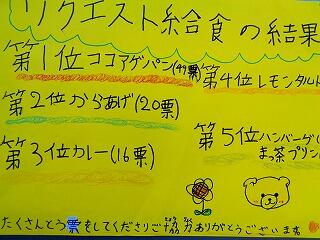 リクエスト給食の結果
第1位ココアアゲパン(49票)
第2位からあげ(20票)
第3位カレー(16票)
第4位レモンタルト
第5位ハンバーグ(
まっ茶プリン
たくさんとう票をしてくださりご協力ありがとうございます